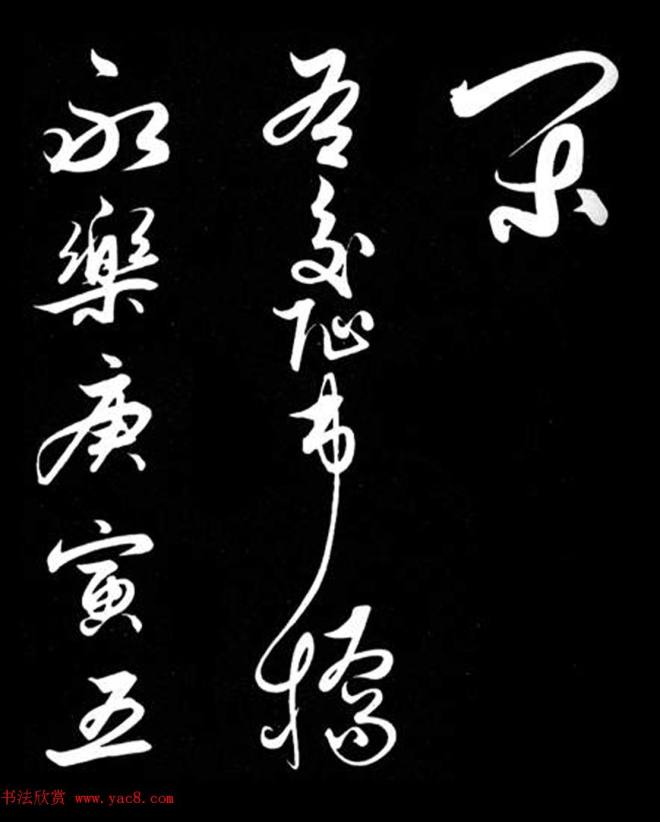 閑
右交阯市橋
永樂庚寅五
书法欣赏 www.yac8.com